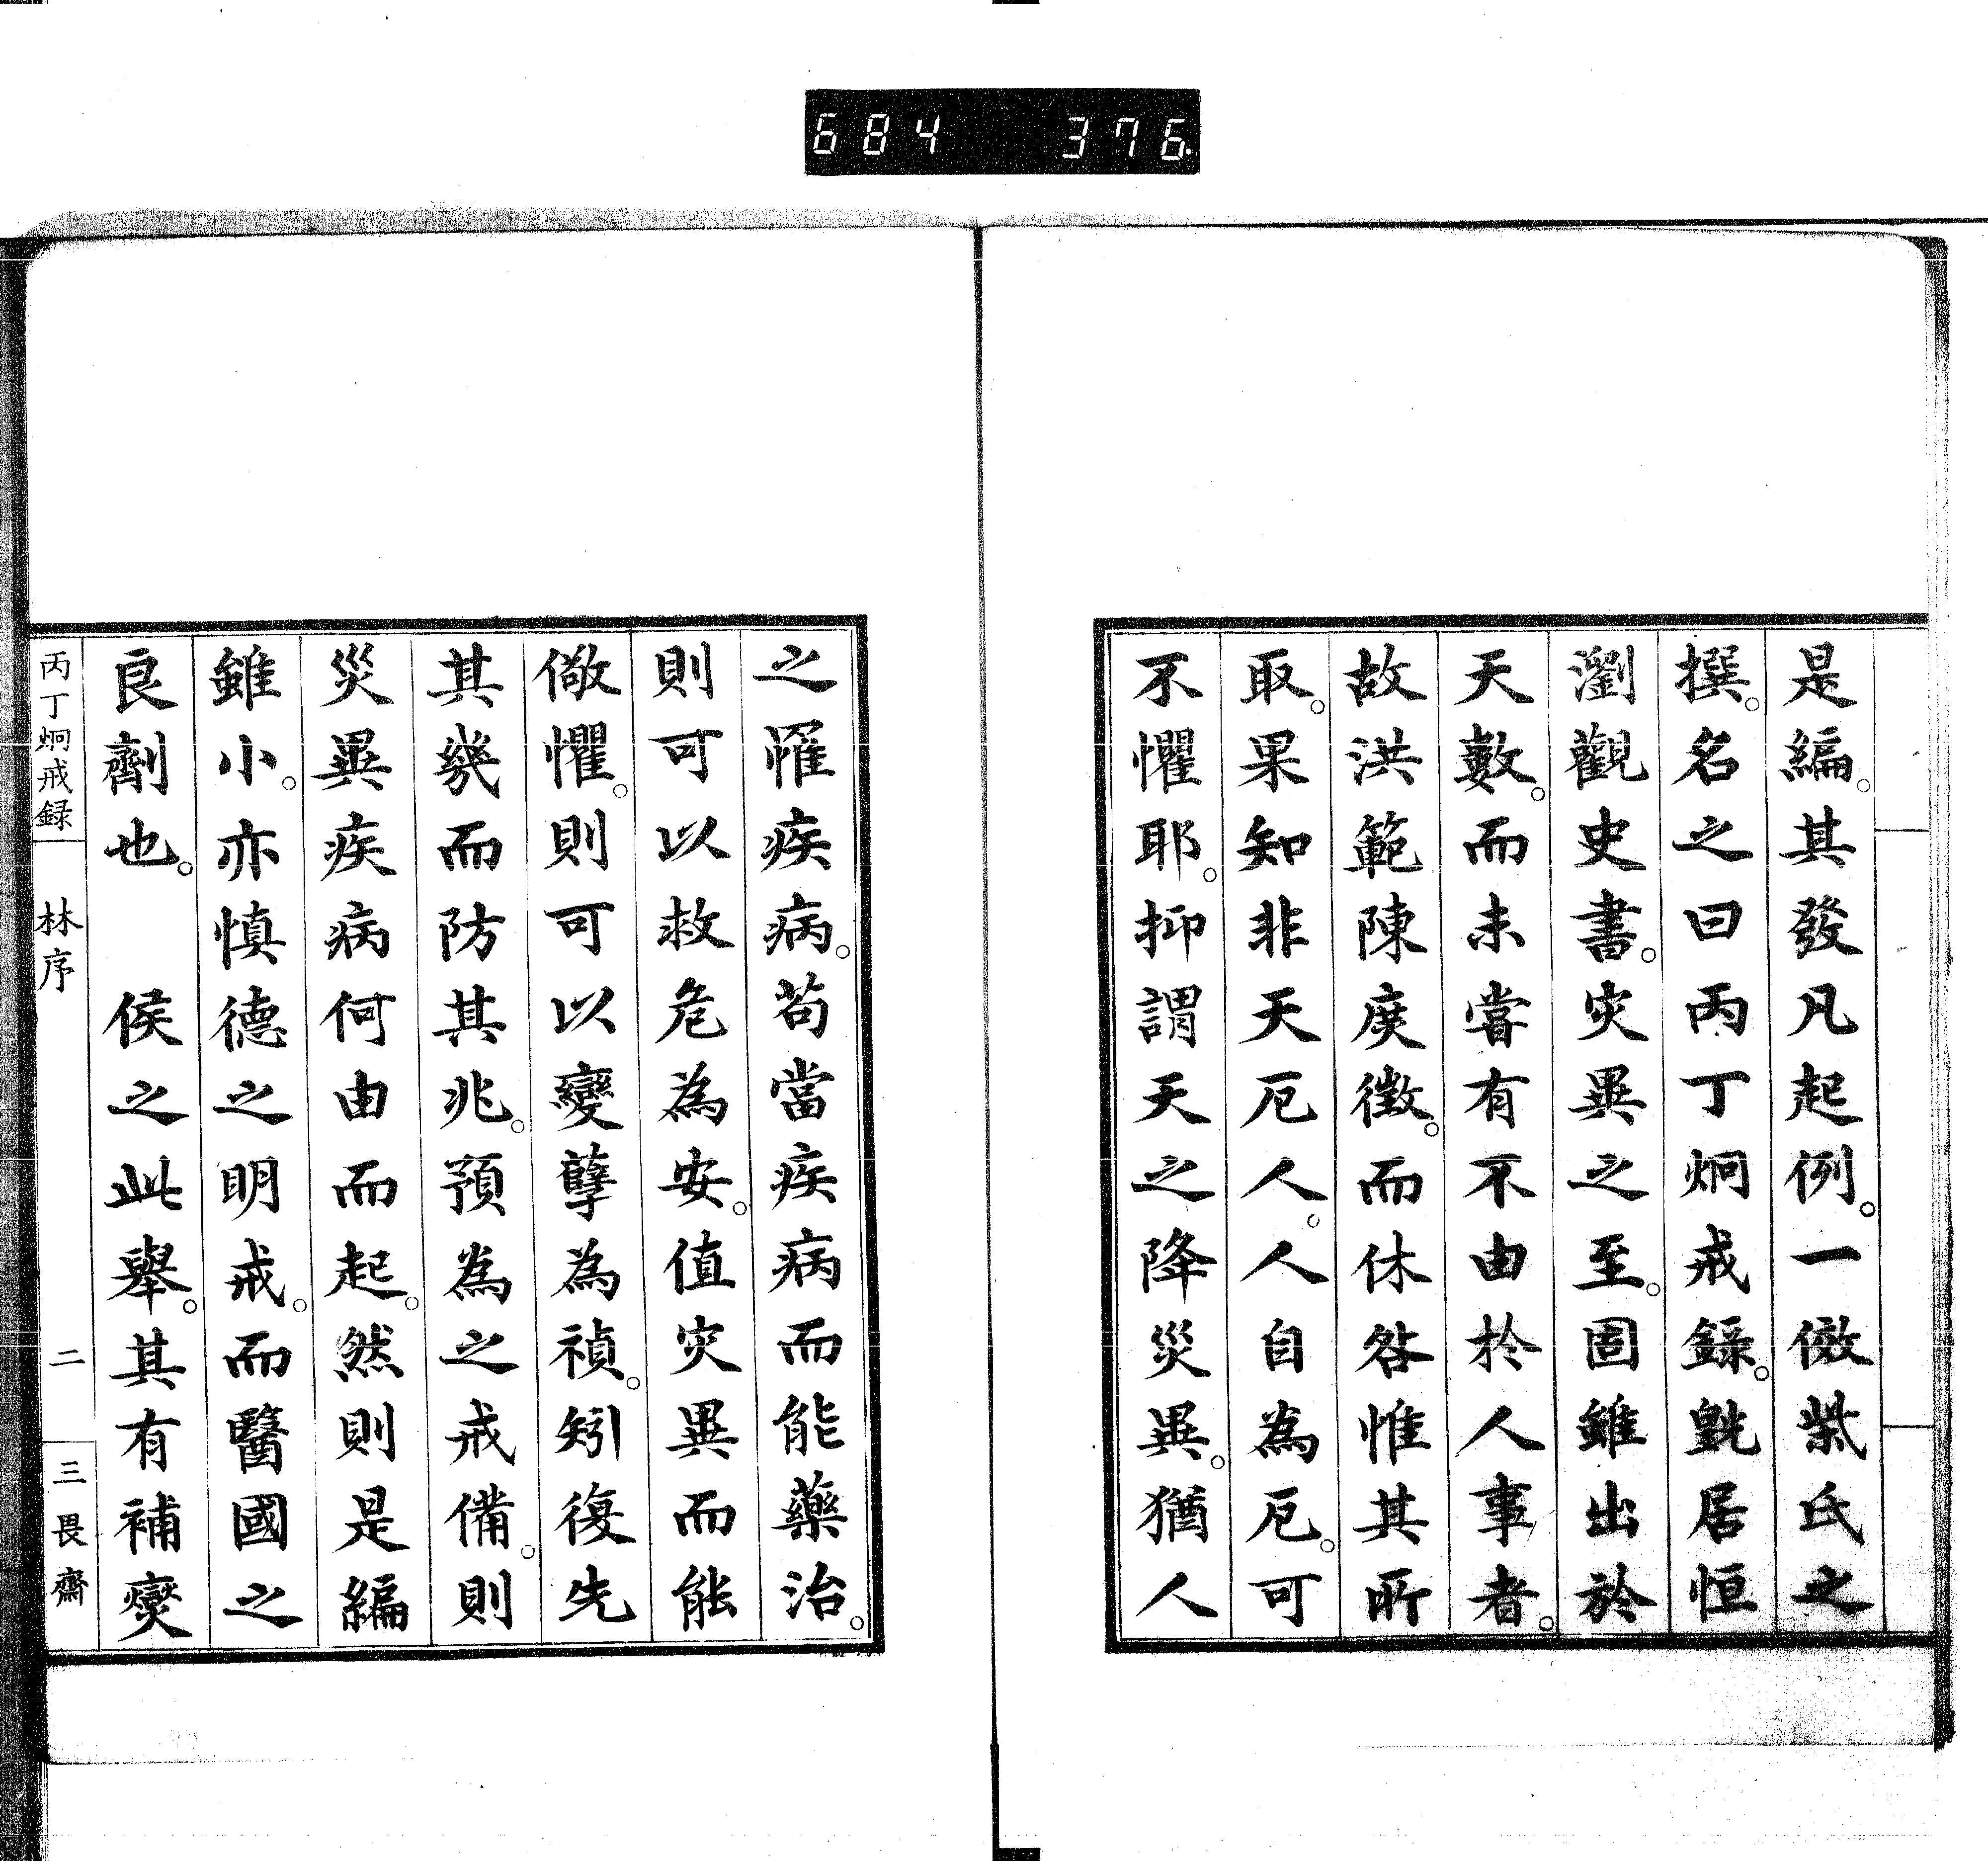 684 376
是編。其發凡起例。一倣柴氏之
撰。名之曰丙丁炯戒録。皝居恒
瀏觀史書。灾異之至。固雖出於
天數。而未嘗有不由於人事者。
故洪範陳庶徴。而休咎惟其所
取。果知非天厄人。人自為厄。可
不懼耶。抑謂天之降災異。猶人
之罹疾病。苟當疾病而能藥治。
則可以救危為安。値灾異而能
儆懼。則可以變孽為禎。矧復先
其幾而防其兆。預為之戒備。則
災異疾病何由而起。然則是編
雖小。亦慎德之明戒。而醫國之
良劑也。 侯之此舉。其有補燮
丙丁炯戒録 林序 二 三畏齋